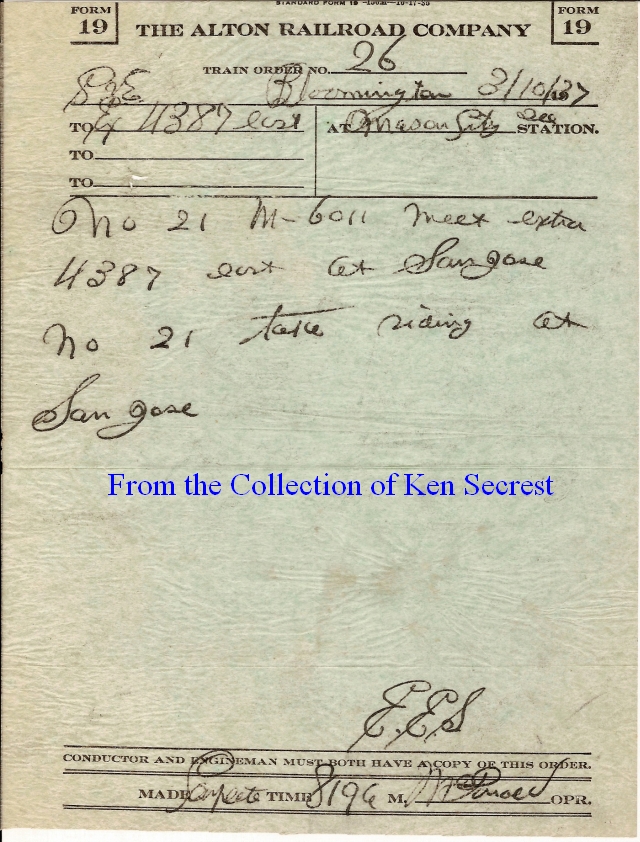 STANDARD FORM 19
FORM 19
FORM 19
THE ALTON RAILROAD COMPANY
TRAIN ORDER NO. 26
Bloomington 3/10/37
TO 4387 east
AT Mason City STATION.
TO
TO
No 21 M-6011 meet extra
4387 east at San jose
No 21 take siding at
San jose
From the Collection of Ken Secrest
CONDUCTOR AND ENGINEMAN MUST BOTH HAVE A COPY OF THIS ORDER.
MADE TIME M. OPR.